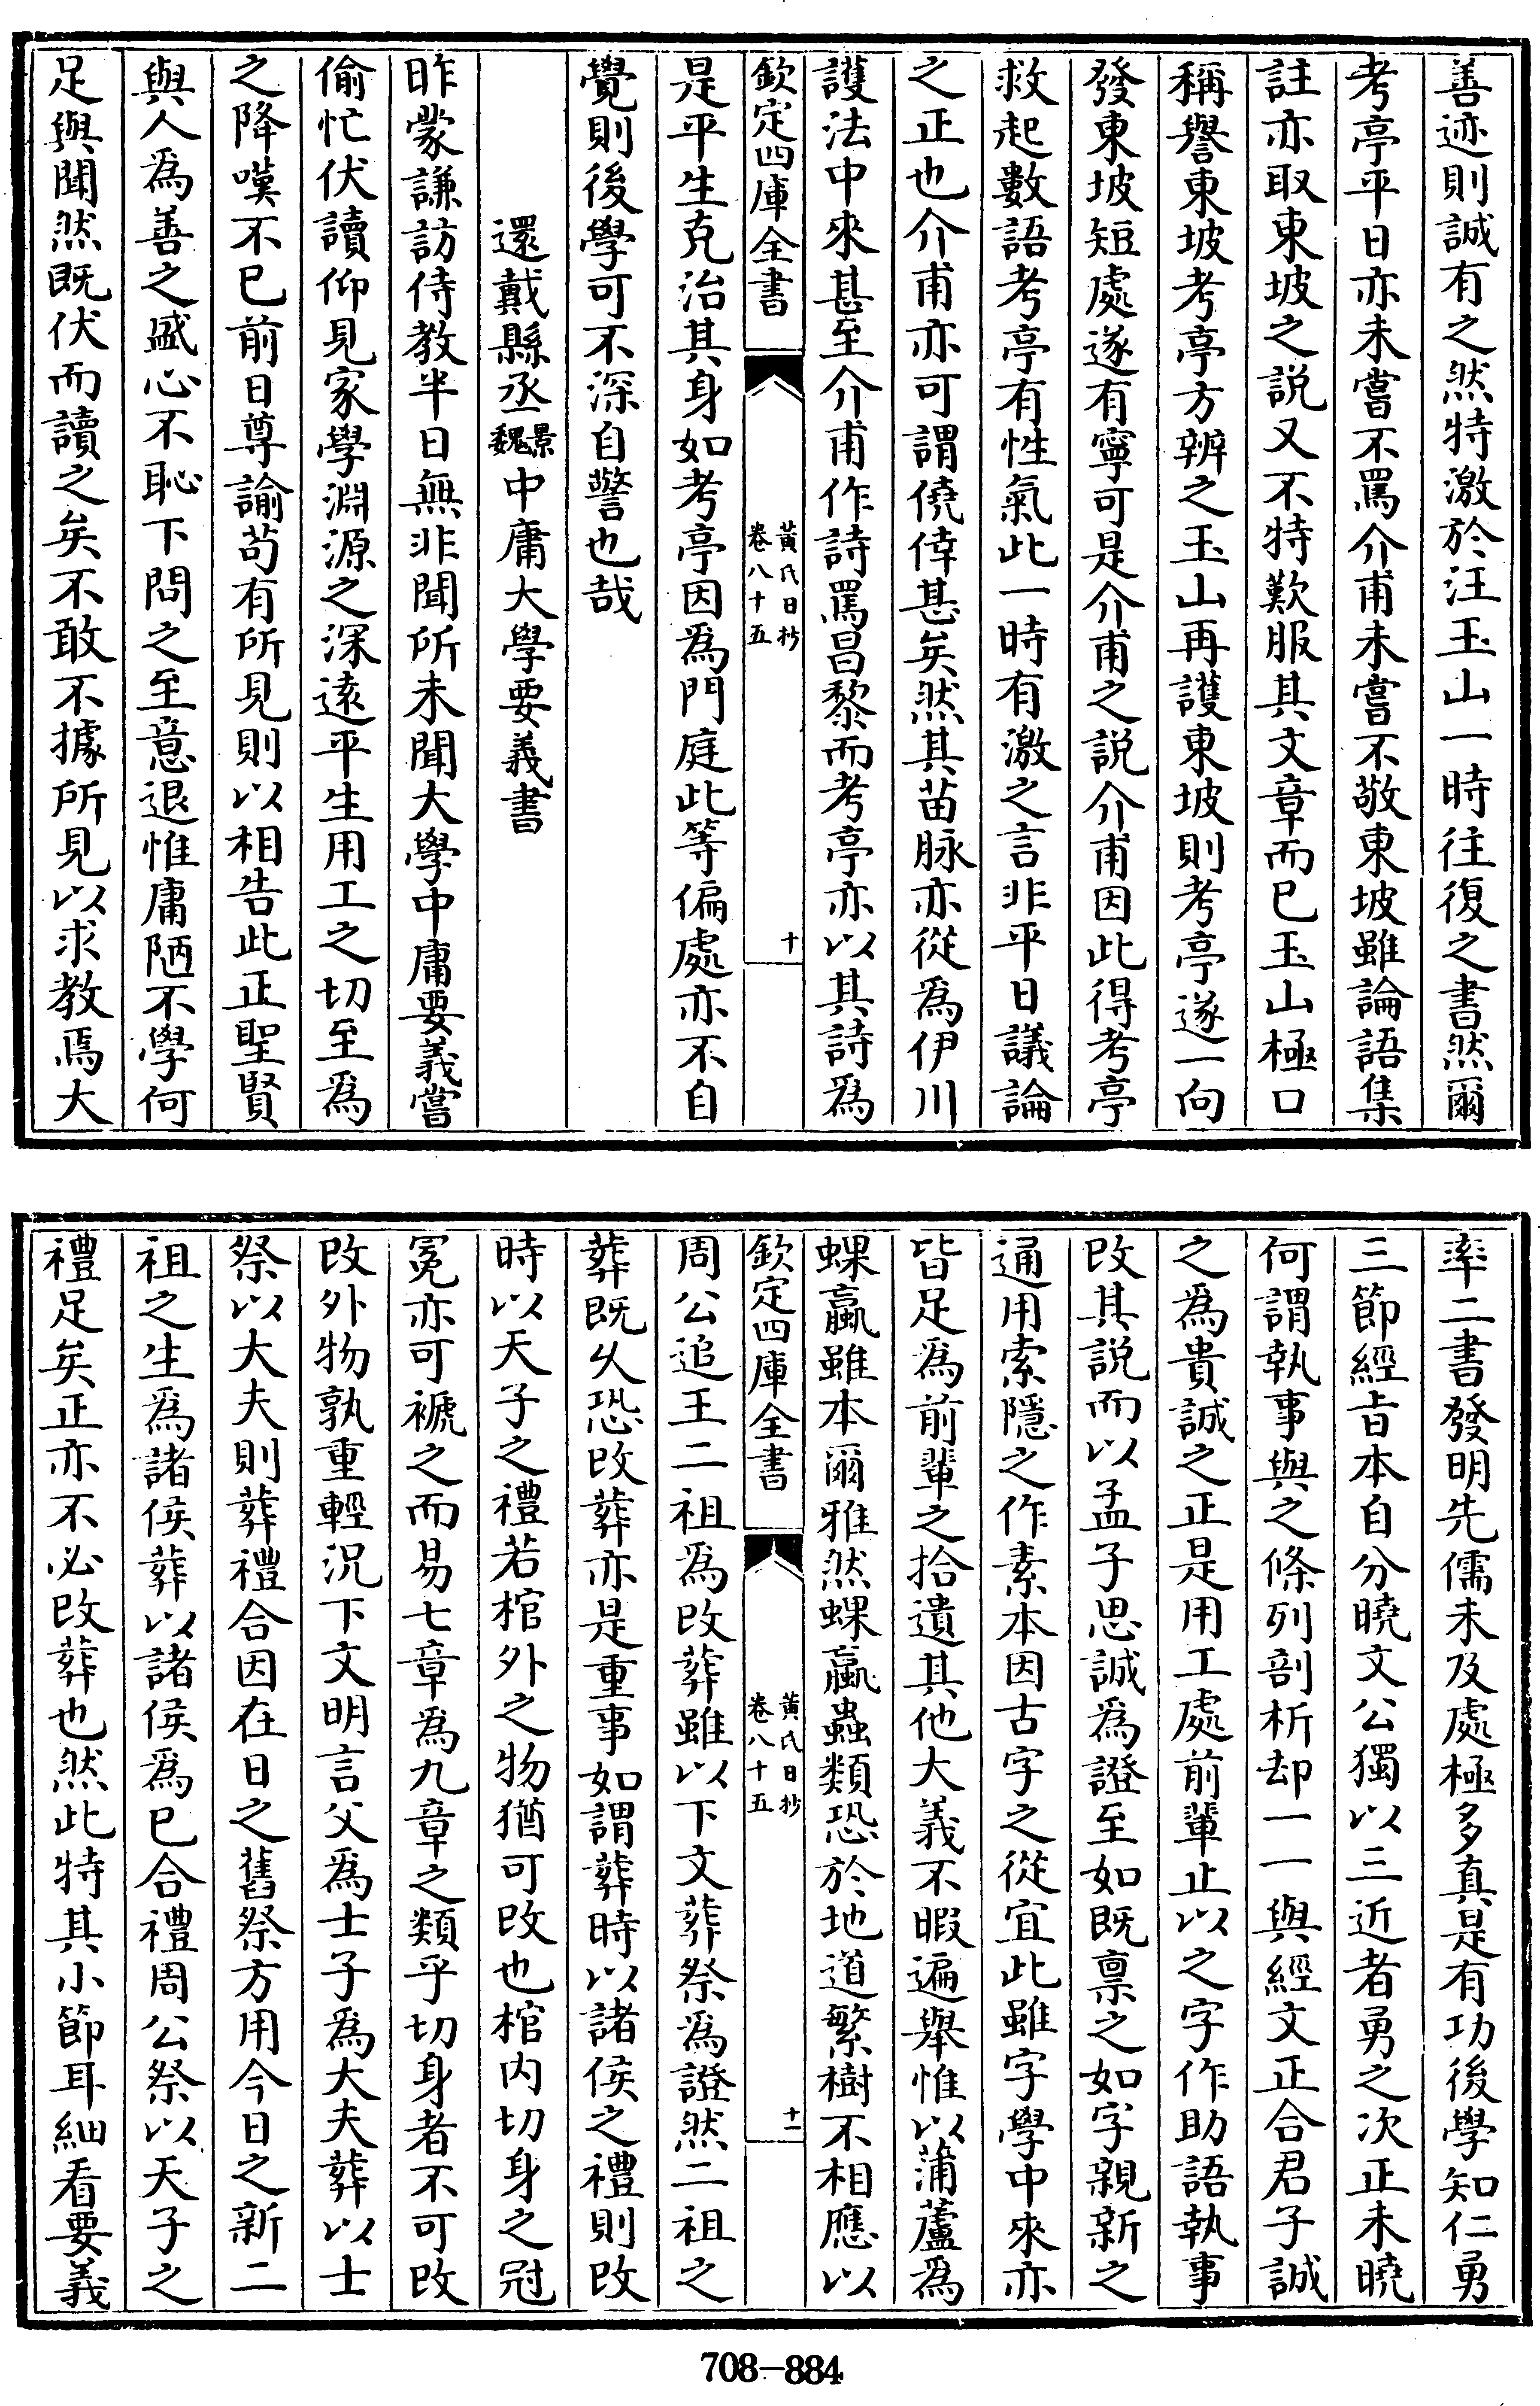 善迹則誠有之然特激於汪玉山一時往復之書然爾
考亭平日亦未嘗不罵介甫未嘗不敬東坡雖論語集
註亦取東坡之説又不特歎服其文章而已玉山極口
稱譽東坡考亭方辨之玉山再護東坡則考亭遂一向
發東坡短處遂有寧可是介甫之説介甫因此得考亭
救起數語考亭有性氣此一時有激之言非平日議論
之正也介甫亦可謂僥倖甚矣然其苗脉亦從為伊川
護法中來甚至介甫作詩罵昌黎而考亭亦以其詩為
欽定四庫全書 黃氏日抄 卷八十五 十
是平生克治其身如考亭因為門庭此等偏處亦不自
覺則後學可不深自警也哉
還戴縣丞景魏中庸大學要義書
昨蒙謙訪侍教半日無非聞所未聞大學中庸要義嘗
偷忙伏讀仰見家學淵源之深逺平生用工之切至為
之降嘆不已前日尊諭苟有所見則以相告此正聖賢
與人為善之盛心不恥下問之至意退惟庸陋不學何
足與聞然既伏而讀之矣不敢不據所見以求教焉大
率二書發明先儒未及處極多真是有功後學知仁勇
三節經㫖本自分曉文公獨以三近者勇之次正未曉
何謂執事與之條列剖析却一一與經文正合君子誠
之為貴誠之正是用工處前輩止以之字作助語執事
改其説而以孟子思誠為證至如既禀之如字親新之
通用索隠之作素本因古字之從宜此雖字學中來亦
皆足為前輩之拾遺其他大義不暇遍舉惟以蒲蘆為
蜾蠃雖本爾雅然蜾蠃蟲類恐於地道繁樹不相應以
欽定四庫全書 黃氏日抄 卷八十五 十一
周公追王二祖為改葬雖以下文葬祭為證然二祖之
葬既乆恐改葬亦是重事如謂葬時以諸侯之禮則改
時以天子之禮若棺外之物猶可改也棺内切身之冠
冕亦可褫之而易七章為九章之類乎切身者不可改
改外物孰重輕況下文明言父為士子為大夫葬以士
祭以大夫則葬禮合因在日之舊祭方用今日之新二
祖之生為諸侯葬以諸侯為已合禮周公祭以天子之
禮足矣正亦不必改葬也然此特其小節耳細看要義
708-884